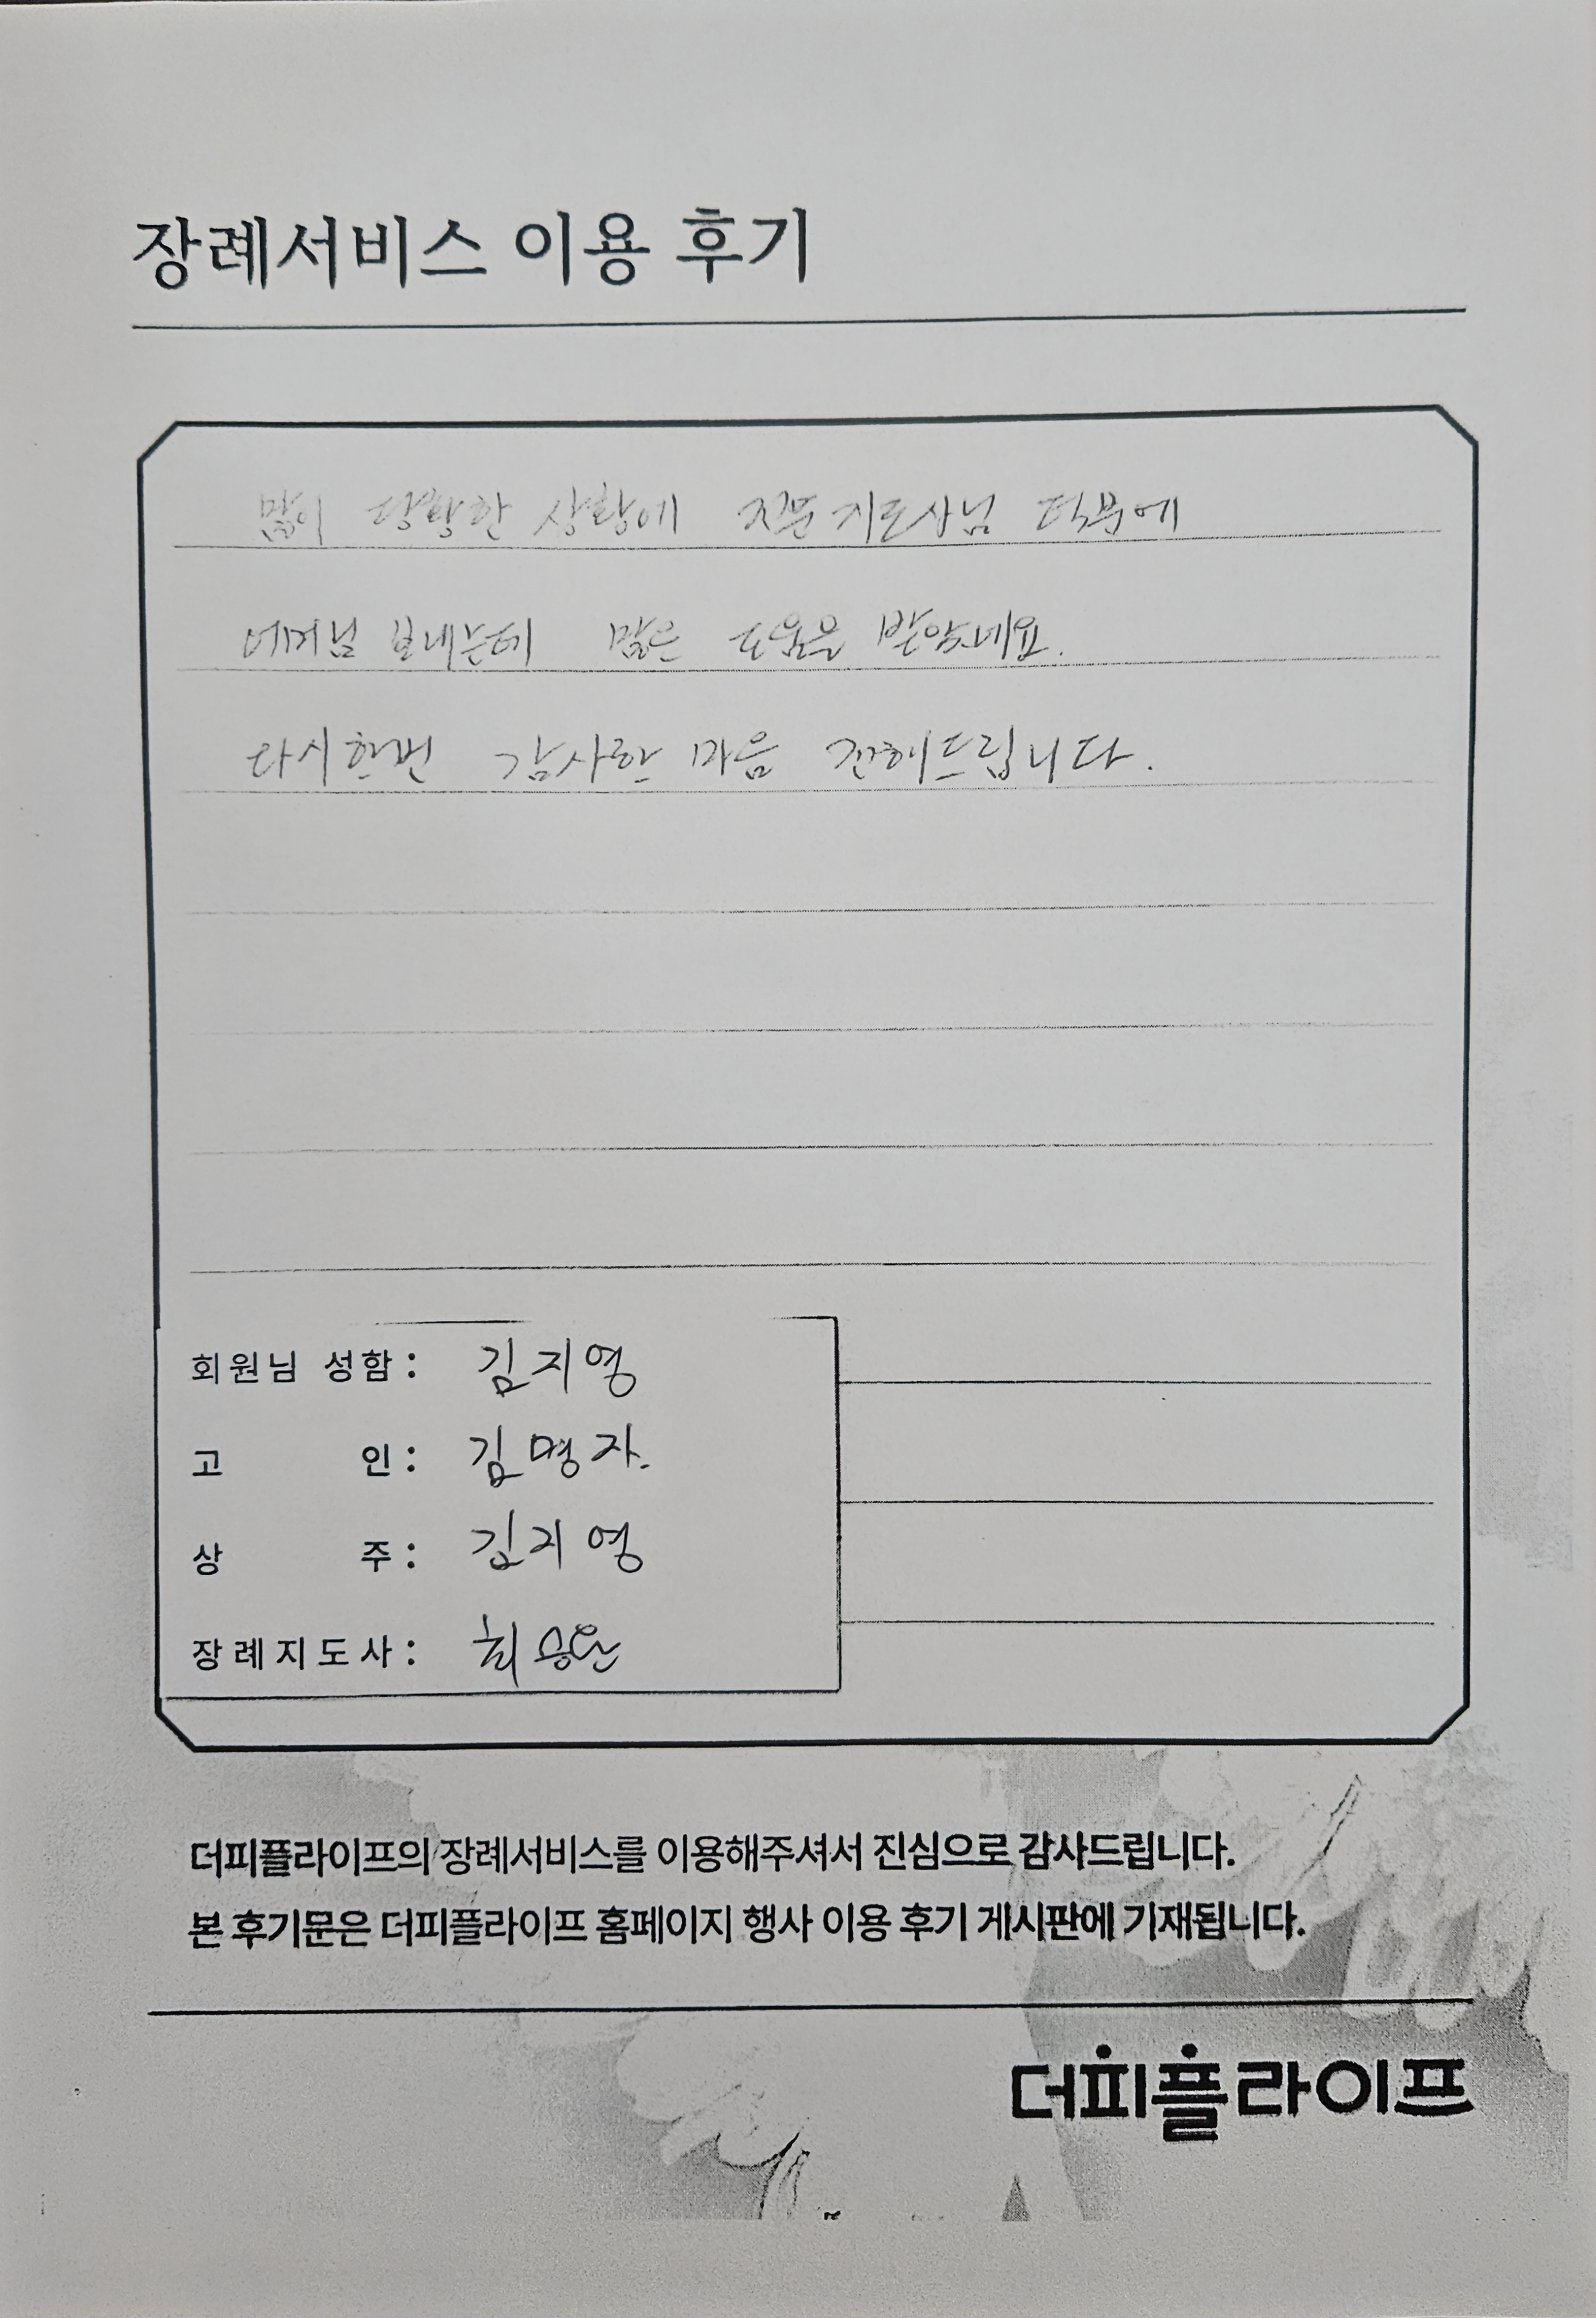 장례서비스 이용 후기
많이 당황한 상황에 전문지도사님 덕분에
어머님 보내는데 많은 도움을 받았네요.
다시한번 감사한 마음 전해드립니다.
회원님 성함: 김지영
고 인: 김명자.
상 주: 김지영
장례지도사: 최
더피플라이프의 장례서비스를 이용해주셔서 진심으로 감사드립니다.
본 후기문은 더피플라이프 홈페이지 행사 이용 후기 게시판에 기재됩니다.
더피플라이프